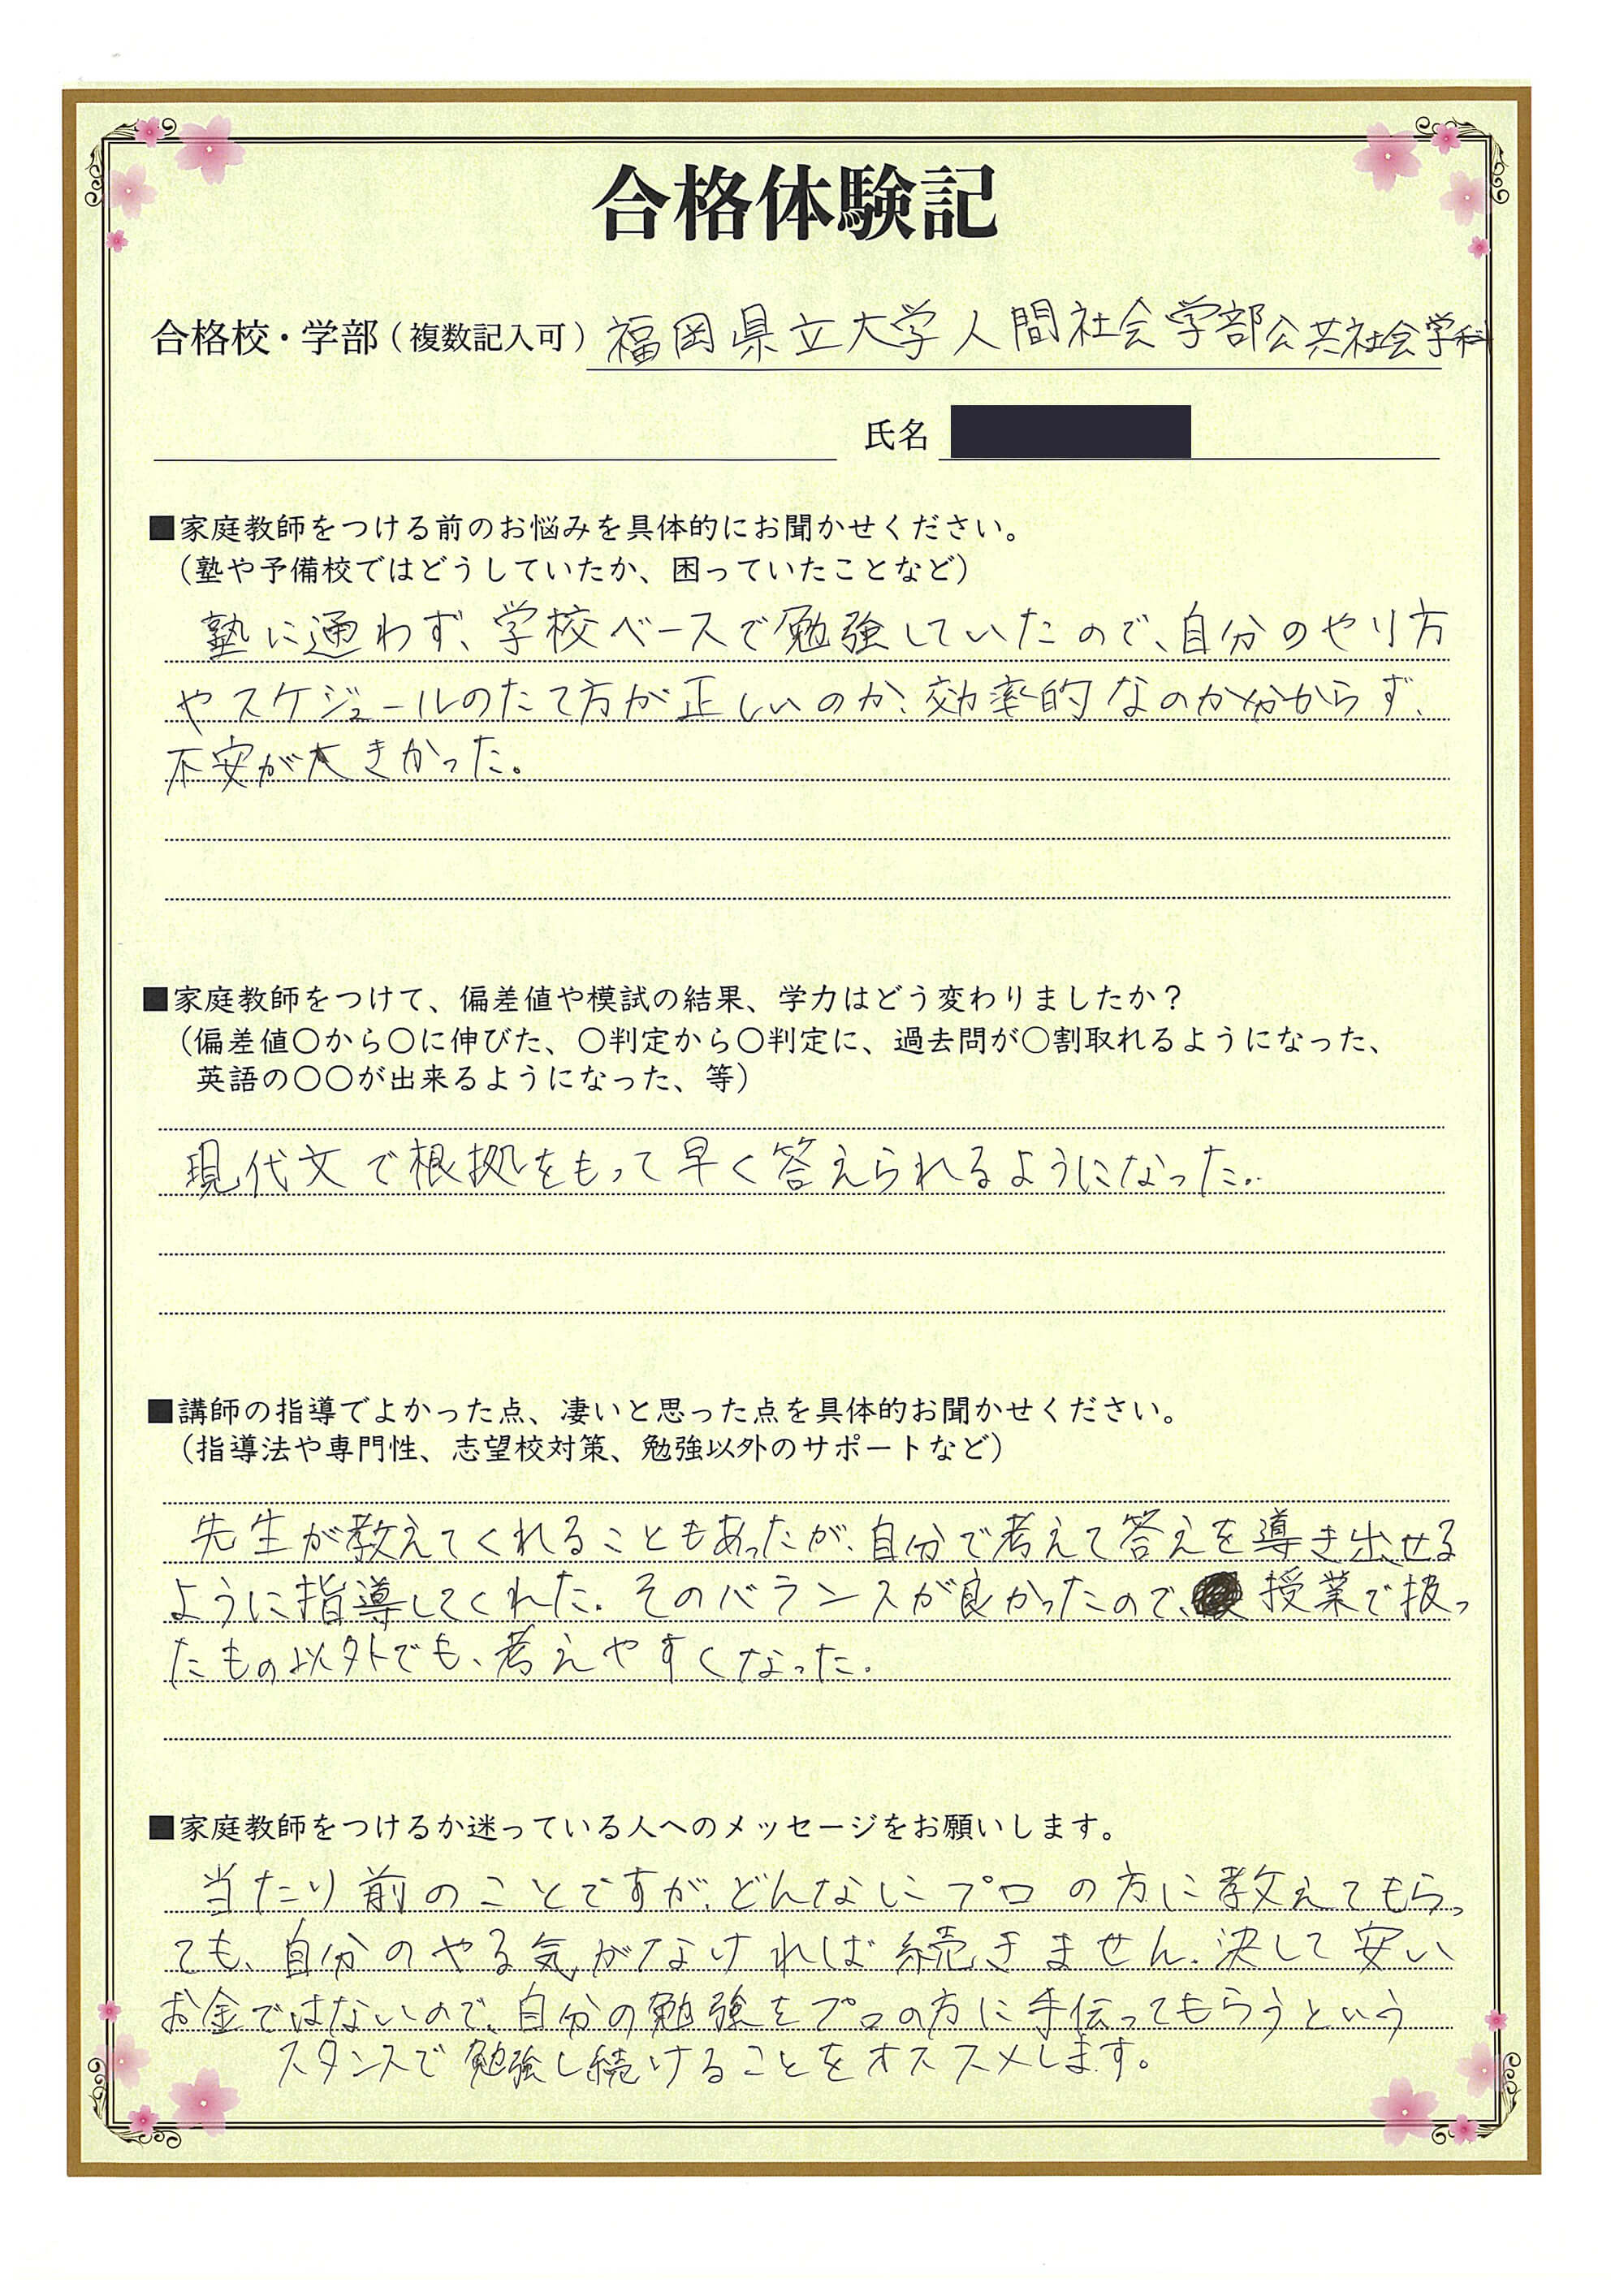 合格体験記
合格校・学部（複数記入可）福岡県立大学人間社会学部公共社会学科
氏名
■家庭教師をつける前のお悩みを具体的にお聞かせください。
（塾や予備校ではどうしていたか、困っていたことなど）
塾に通わず、学校ベースで勉強していたので、自分のやり方
やスケジュールのたて方が正しいのか、効率的なのか分からず、
不安が大きかった。
■家庭教師をつけて、偏差値や模試の結果、学力はどう変わりましたか？
（偏差値〇から〇に伸びた、〇判定から〇判定に、過去問が〇割取れるようになった、
英語の〇〇が出来るようになった、等）
現代文で根拠をもって早く答えられるようになった。
■講師の指導でよかった点、凄いと思った点を具体的お聞かせください。
（指導法や専門性、志望校対策、勉強以外のサポートなど）
先生が教えてくれることもあったが、自分で考えて答えを導き出せる
ように指導してくれた。そのバランスが良かったので、授業で扱っ
たもの以外でも、考えやすくなった。
■家庭教師をつけるか迷っている人へのメッセージをお願いします。
当たり前のことですが、どんなにプロの方に教えてもらっ
ても、自分のやる気がなければ続きません。決して安い
お金ではないので、自分の勉強をプロの方に手伝ってもらうという
スタンスで勉強し続けることをオススメします。